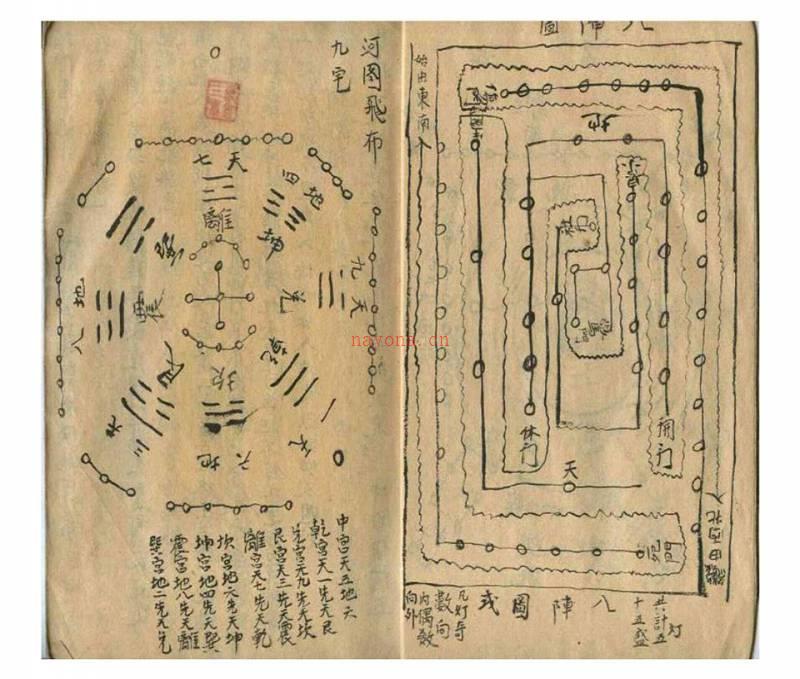 八陣圖
始由東南入
地
休门
開门
天
八陣圖式
共計五十五盞灯
凡灯奇
數向
内偶数
向外
河图飛布
九宅
天七
離
地四
坤
天九
兌
坎
地六
震
地八
中宮天五地
乾宮天一先天艮
兌宮天九先天坎
艮宮天三先天震
離宮天七先天乾
坎宮地六先天坤
坤宮地四先天巽
震宮地八先天離
巽宮地二先天兌
nayona.cn